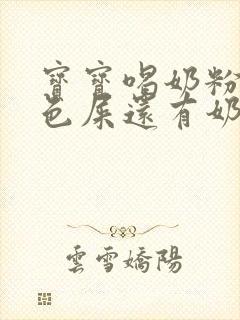 寶寶喝奶粉
色屎還有奶
雲雪嬌陽